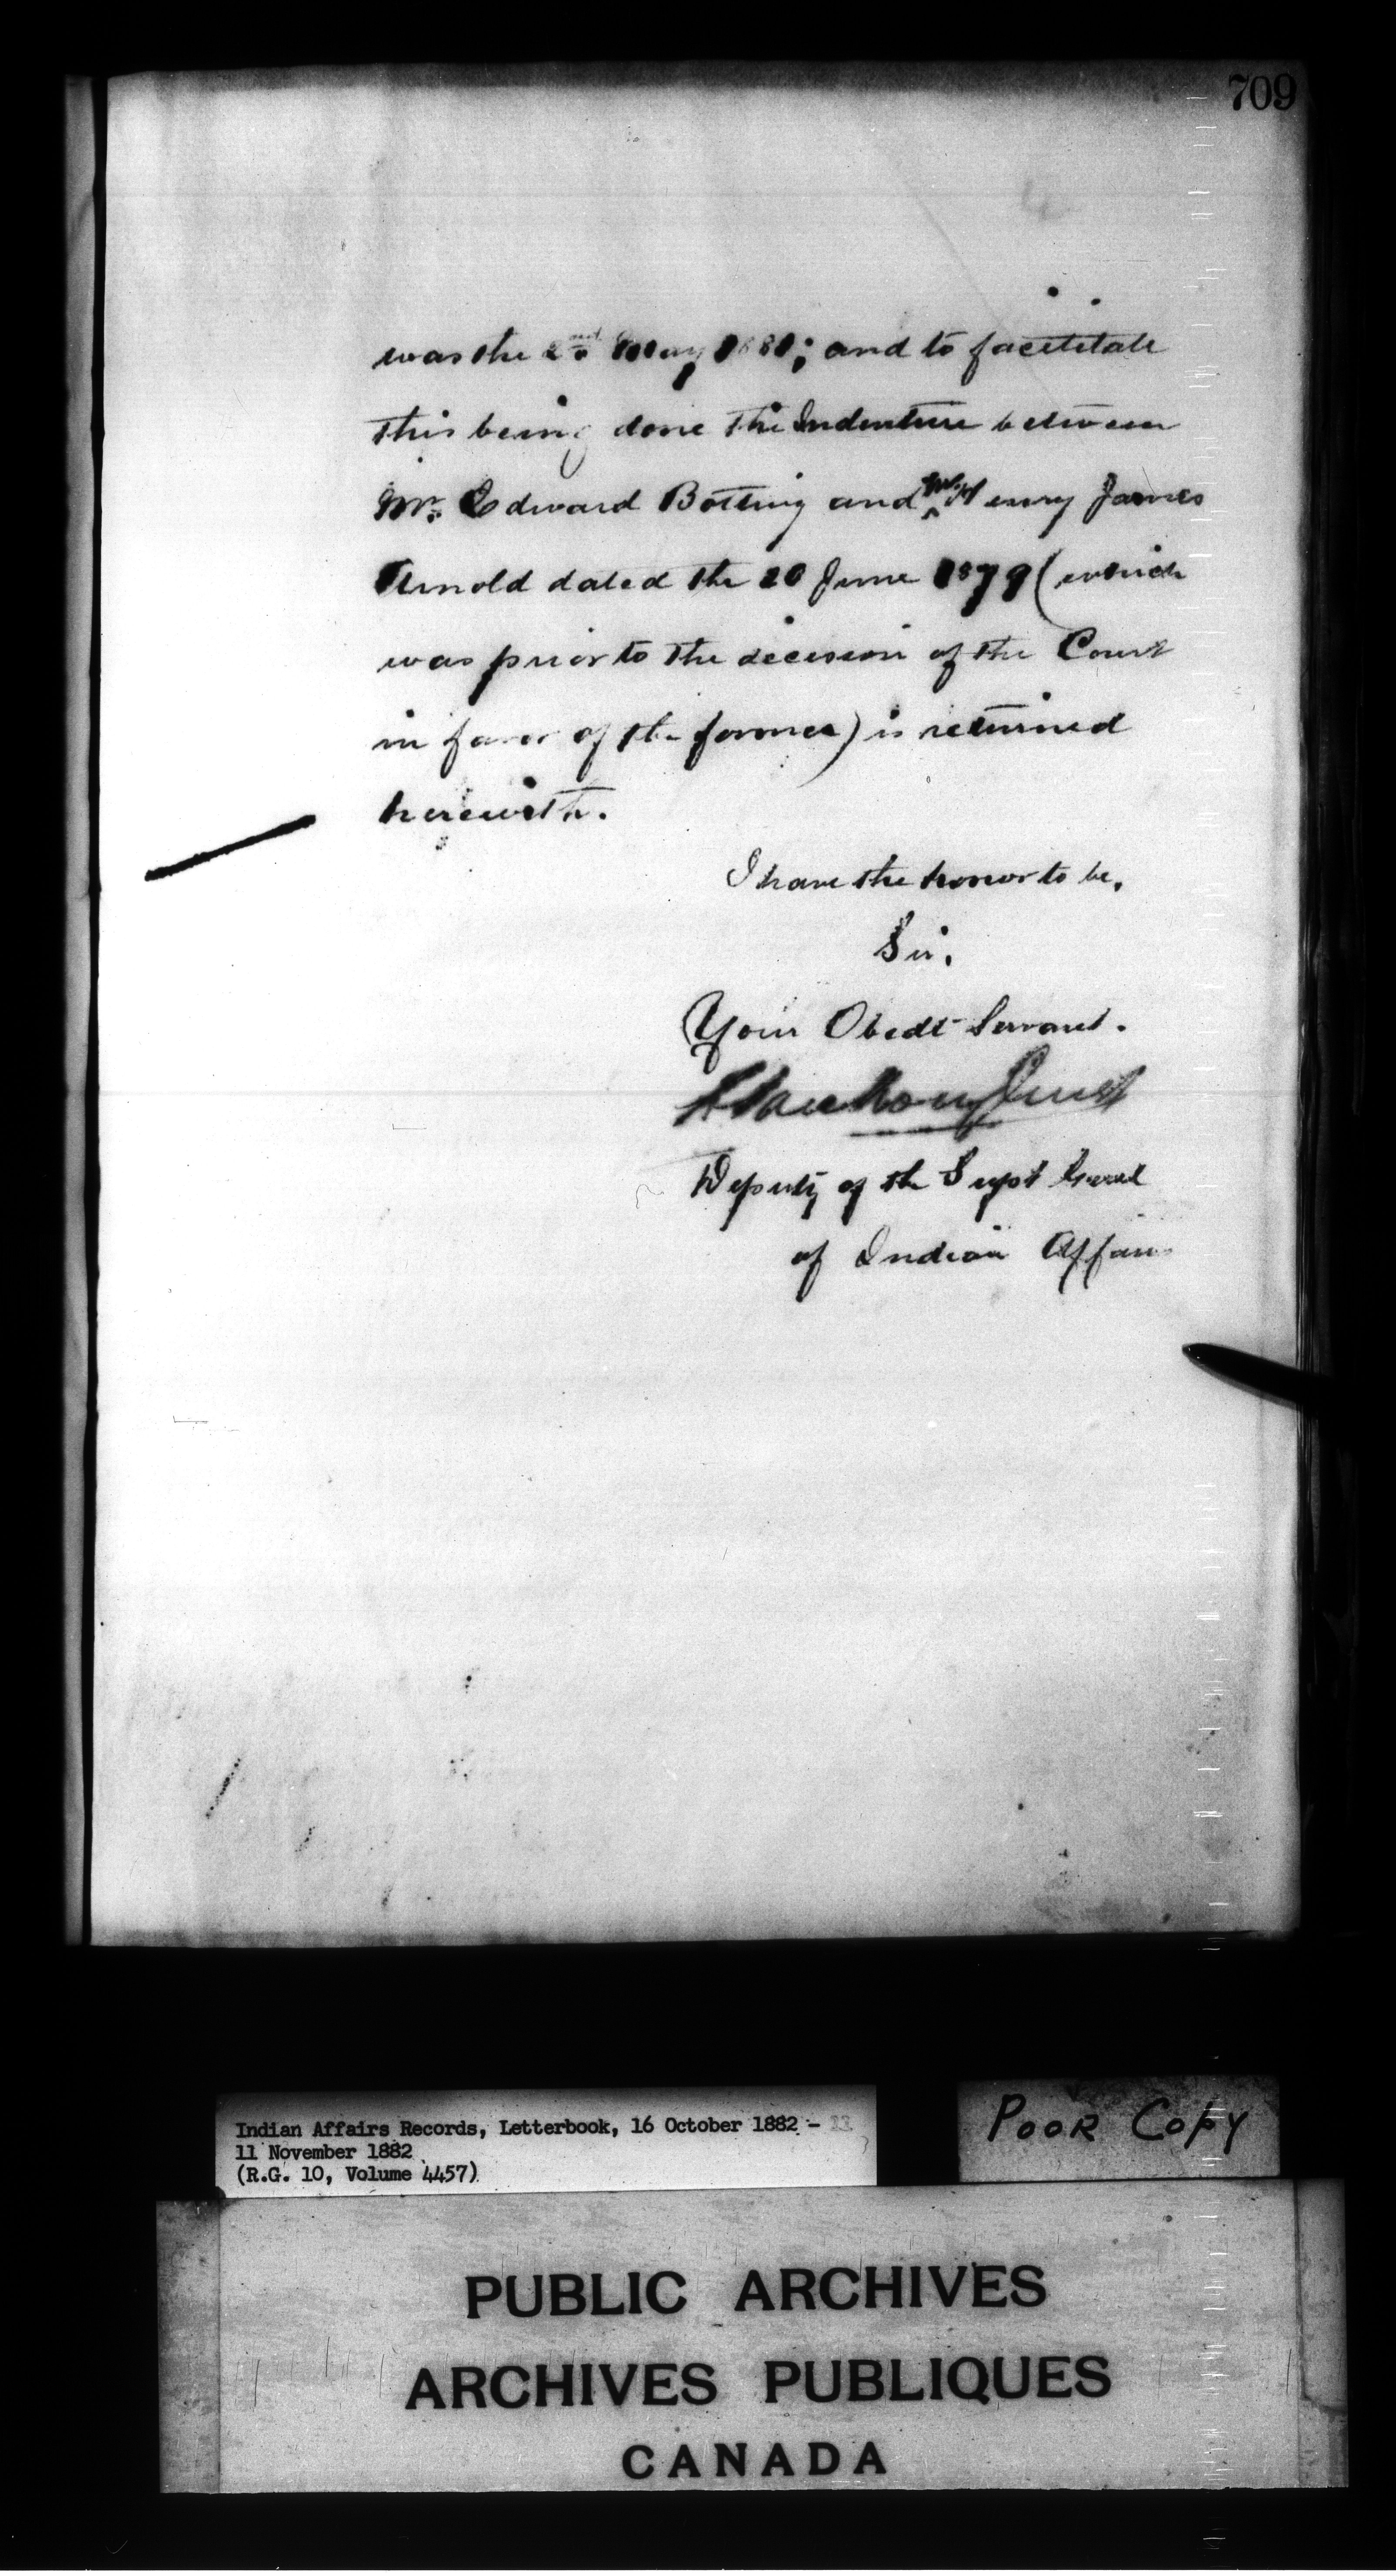 709
was the 2nd May 1881; and to facilitate
this being done the Indenture between
Mr. Edward Botting and Mr. Henry James
Arnold dated the 20 June 1879 (which
was prior to the decision of the Court
in favor of the former) is returned
herewith.
I have the honor to be,
Sir,
Your Obedt Servant.
L VanKoughnet
Deputy of the Supt Genl
of Indian Affairs
Indian Affairs Records, Letterbook, 16 October 1882 -
11 November 1882
(R.G. 10, Volume 4457)
POOR COPY
PUBLIC ARCHIVES
ARCHIVES PUBLIQUES
CANADA